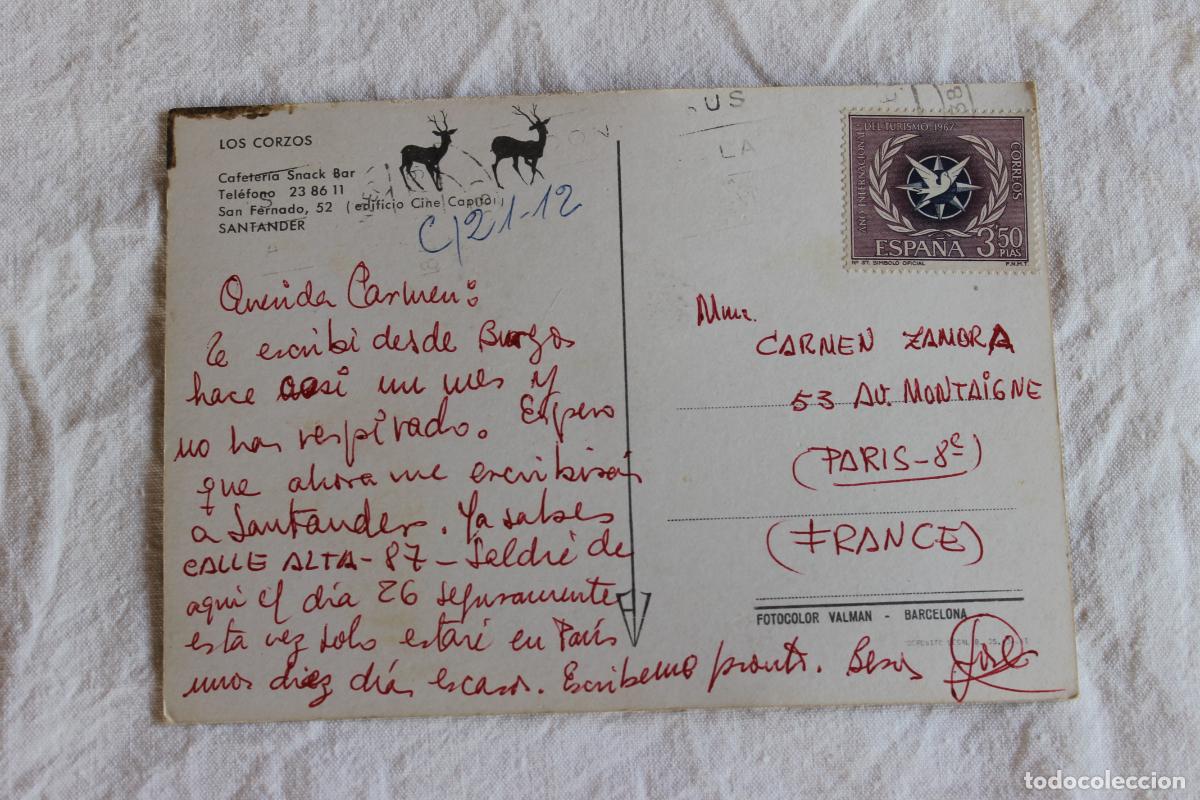 LOS CORZOS
Cafetería Snack Bar
Teléfono 23 86 11
San Fernado, 52 (edificio Cine Capitol)
SANTANDER
C/21-12
Querida Carmen:
Te escribí desde Burgos
hace casi un mes y
no has respirado. Espero
que ahora me escribirás
a Santander. Ya sabes
CALLE ALTA-87- Saldré de
aquí el día 26 seguramente
esta vez solo estaré en París
unos diez días escasos. Escribeme pronto. Besos
US
LA
AÑO INTERNACIONAL DEL TURISMO 1967
CORREOS
ESPAÑA 3'50 PTAS
Nº 37. SIMBOLO OFICIAL F.N.M.T.
Mme.
CARMEN ZAMORA
53 AV. MONTAIGNE
(PARIS-8e)
(FRANCE)
FOTOCOLOR VALMAN - BARCELONA
todocoleccion